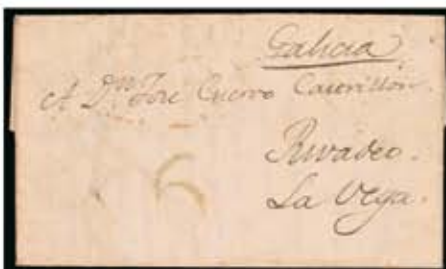 Galicia
A Dn Jose Cuervo Castrillon.
Rivadeo.
La Vega.
6